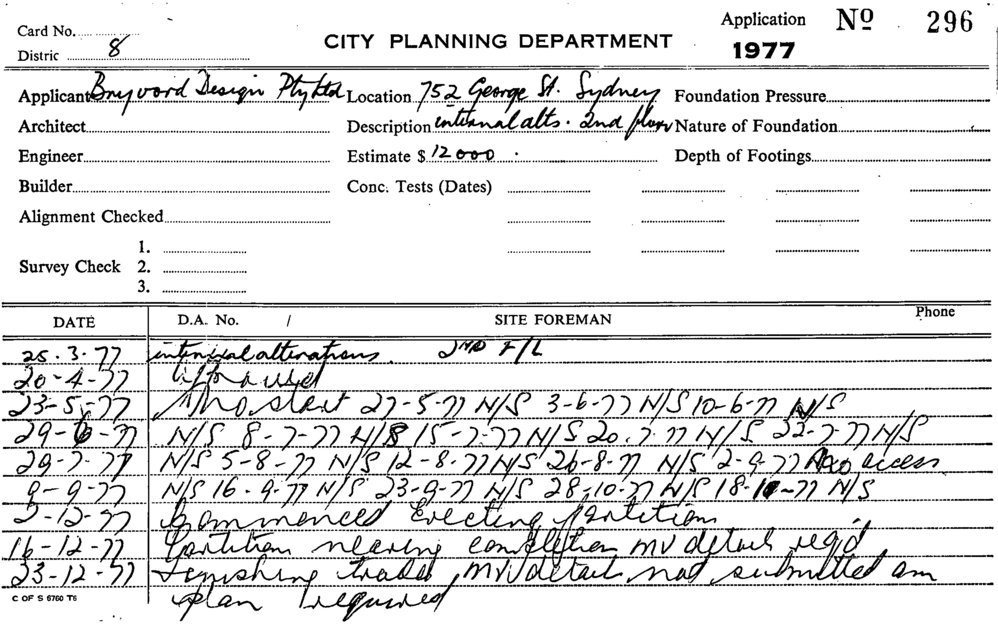 Card No.
Distric 8
CITY PLANNING DEPARTMENT
Application No 296
1977
Applicant Design Pty Ltd Location 752 George St. Sydney Foundation Pressure
Architect Description internal alts. 2nd floor Nature of Foundation
Engineer Estimate $ 12000 Depth of Footings
Builder Conc. Tests (Dates)
Alignment Checked
1.
Survey Check 2.
3.
DATE D.A. No. / SITE FOREMAN Phone
25.3.77 internal alterations. 2ND F/L
20-4-77
23-5-77 No start 27-5-77 N/S 3-6-77 N/S 10-6-77 N/S
29-6-77 N/S 8-7-77 N/S 15-7-77 N/S 20.7.77 N/S 22-7-77 N/S
29-7-77 N/S 5-8-77 N/S 12-8-77 N/S 26-8-77 N/S 2-9-77 No access
9-9-77 N/S 16-9-77 N/S 23-9-77 N/S 28-10-77 N/S 18-10-77 N/S
2-12-77 Commenced Erecting Partition
16-12-77 Partition nearing completion mv detail reqd
23-12-77 Finishing trades, MV detail not submitted am
plan required
C OF S 6760 T6